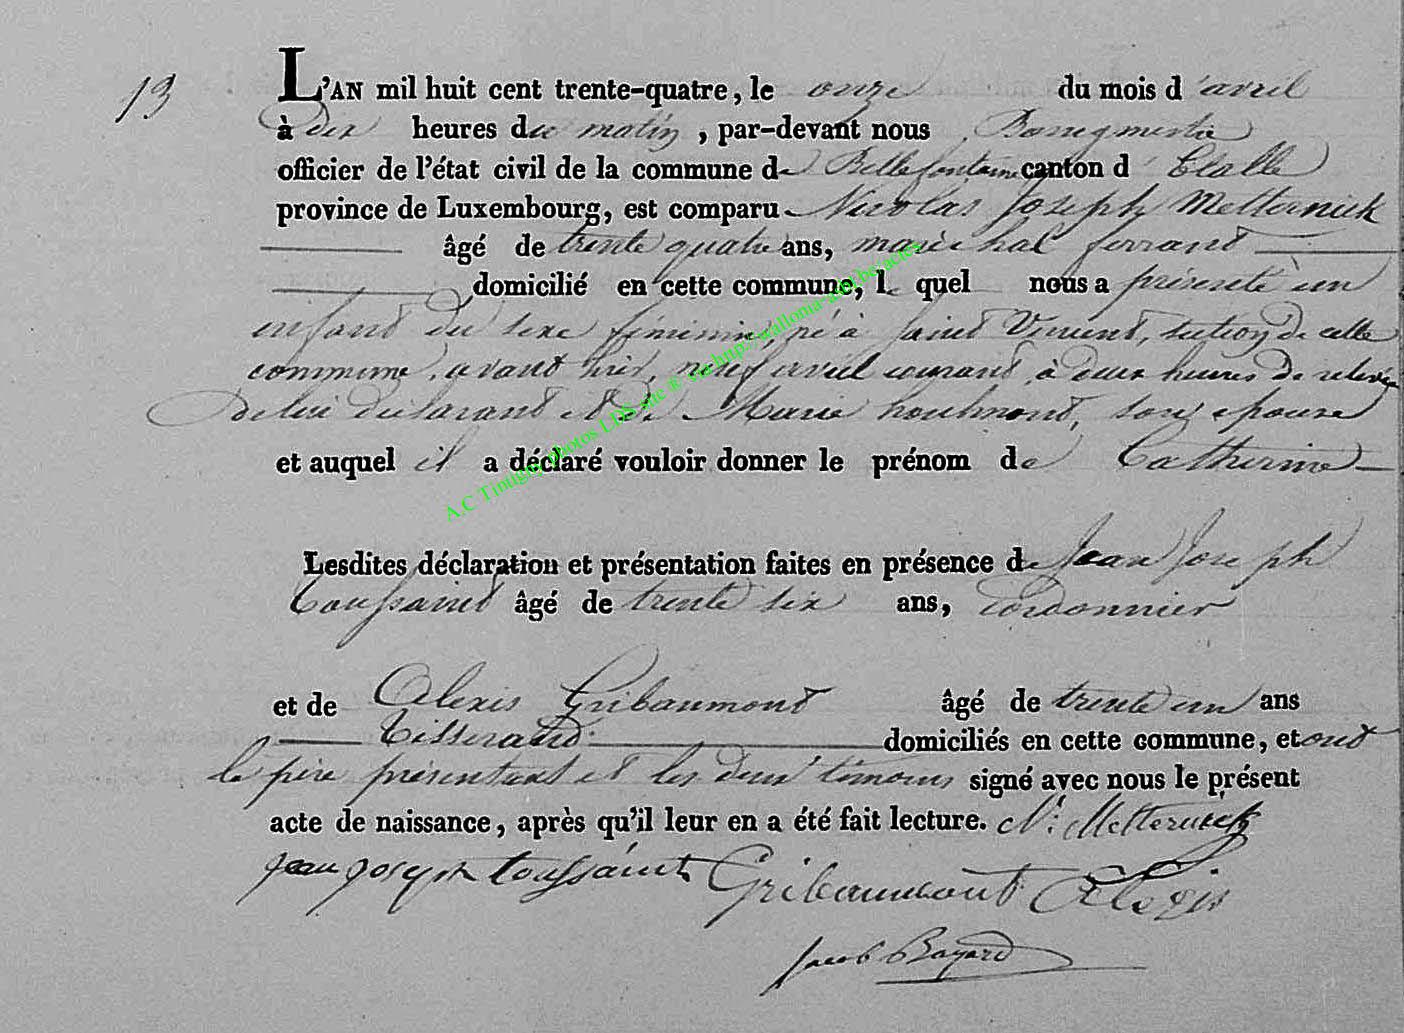 13
L'AN mil huit cent trente-quatre, le onze du mois d'avril
à dix heures du matin, par-devant nous Bourgmestre
officier de l'état civil de la commune de Bellefontaine canton d'Etalle
province de Luxembourg, est comparu Nicolas Joseph Metternick
âgé de trente quatre ans, maréchal ferrant
domicilié en cette commune, lequel nous a présenté un
enfant du sexe féminin, né à Saint Vincent, section de cette
commune, avant hier, neuf avril courant à deux heures de relevée
de lui déclarant et de Marie houlmont, son épouse
et auquel il a déclaré vouloir donner le prénom de Catherine
Lesdites déclaration et présentation faites en présence de Jean Joseph
Toussaint âgé de trente six ans, cordonnier
et de Alexis Gribaumont âgé de trente un ans
Tisserand domiciliés en cette commune, et ont
le père présentant et les deux témoins signé avec nous le présent
acte de naissance, après qu'il leur en a été fait lecture. N: Metternick
jean joseph toussaint Gribaumont Alexis
Jacob Bayard
A.C Tintigny photos LDS site ® via http://wallonia-asbl.be/actes